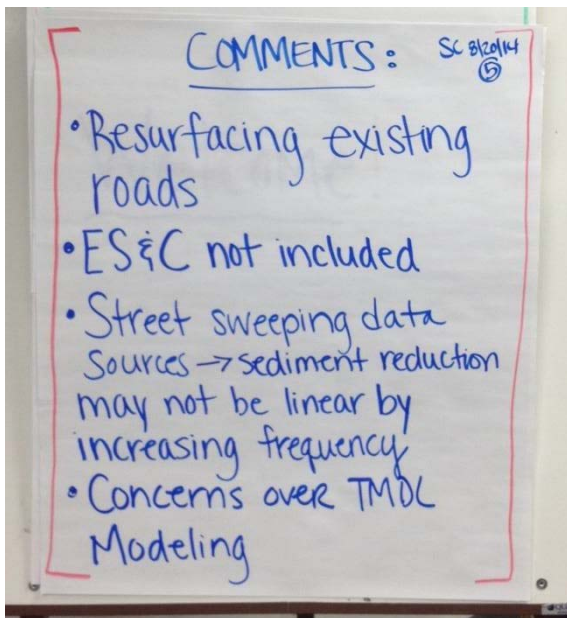 COMMENTS:
SC 8/20/14
⑤
• Resurfacing existing
roads
• ES&C not included
• Street sweeping data
Sources → sediment reduction
may not be linear by
increasing frequency
• Concerns over TMDL
Modeling